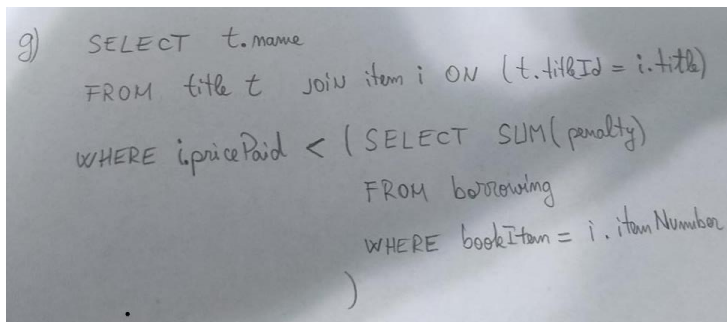 g) SELECT t.name
FROM title t JOIN item i ON (t.titleId = i.title)
WHERE i.pricePaid < (SELECT SUM(penalty)
FROM borrowing
WHERE bookItem = i.itemNumber
)